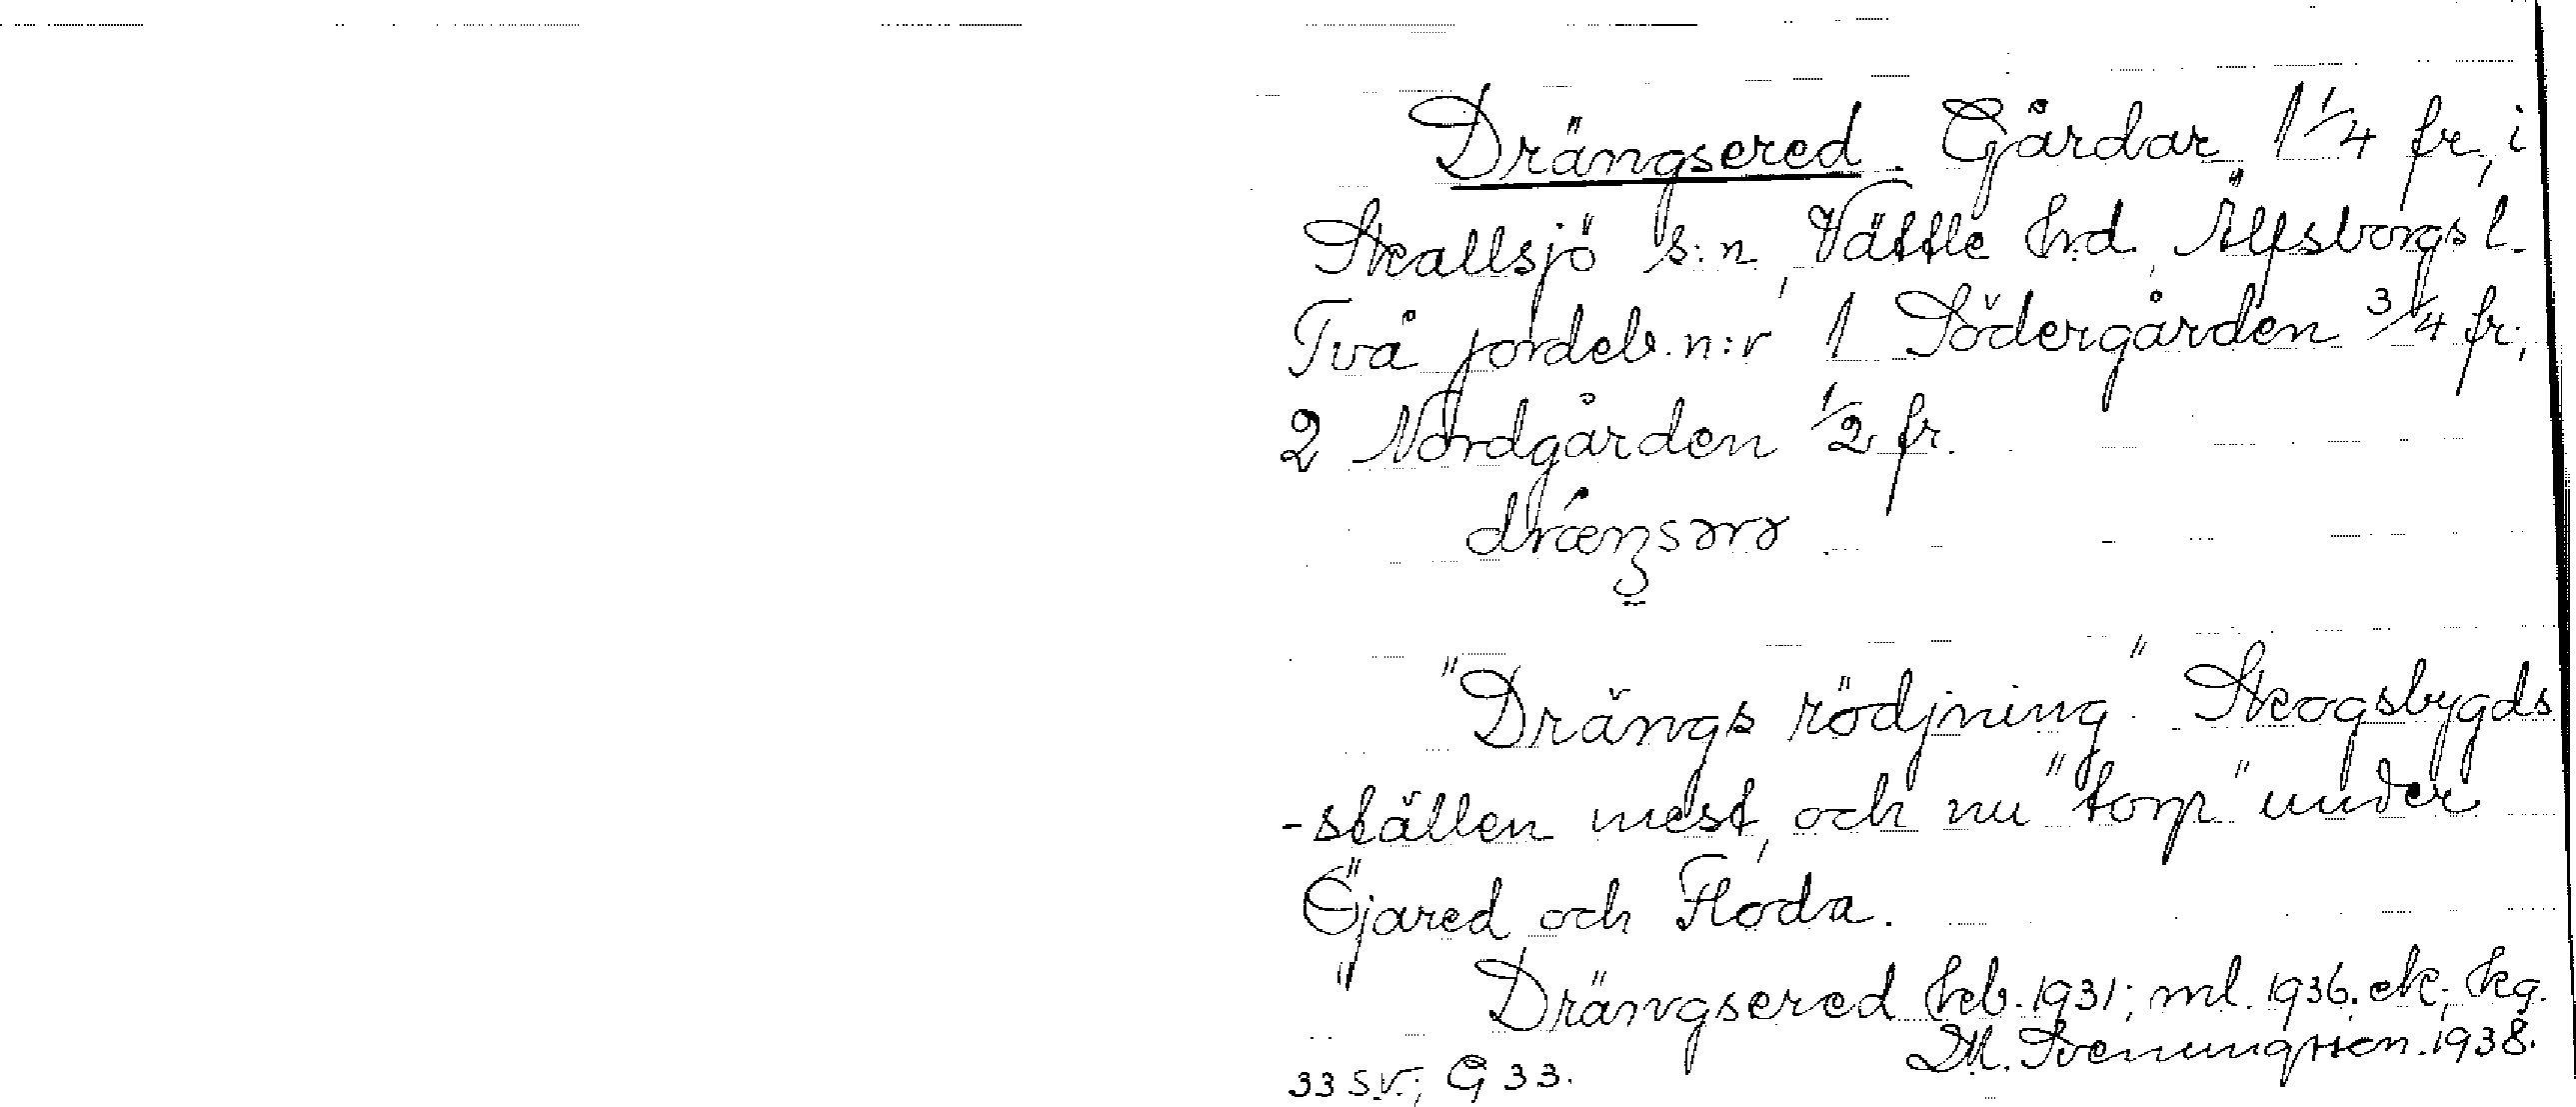 Drängsered. Gårdar, 1 1/4 fr, i
Skallsjö s:n, Vättle hrd, Älfsborgs l.
Två jordeb.n:r 1 Södergården 3/4 fr;
2 Nordgården 1/2 fr.
"Drängs rödjning". Skogsbygds
-ställen mest, och nu "torp" under
Öjared och Floda.
Drängsered hb. 1931; ml. 1936. ek; kg.
33 SV; G 33.